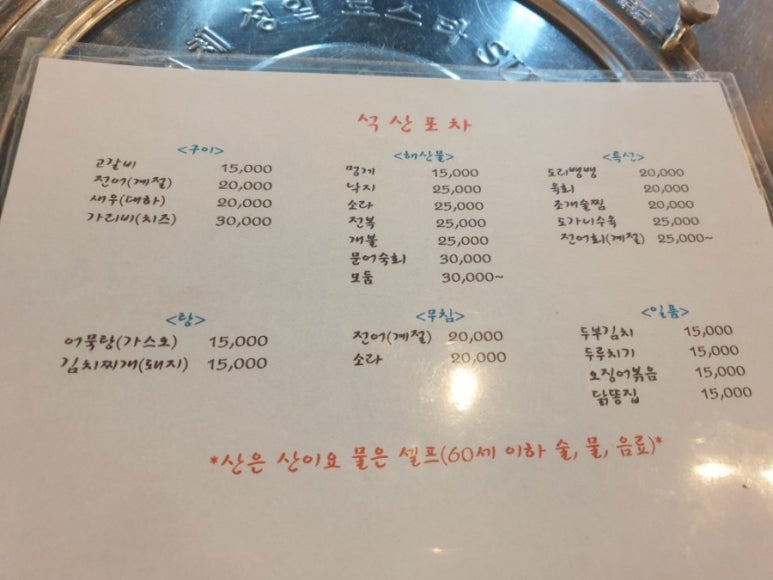 체 청결 로스타 SU
석산포차
<구이>
고갈비 15,000
전어(계절) 20,000
새우(대하) 20,000
가리비(치즈) 30,000
<해산물>
멍게 15,000
낙지 25,000
소라 25,000
전복 25,000
개불 25,000
문어숙회 30,000
모둠 30,000~
<특선>
도리뱅뱅 20,000
육회 20,000
조개술찜 20,000
도가니수육 25,000
전어회(계절) 25,000~
<탕>
어묵탕(가스오) 15,000
김치찌개(돼지) 15,000
<무침>
전어(계절) 20,000
소라 20,000
<일품>
두부김치 15,000
두루치기 15,000
오징어볶음 15,000
닭똥집 15,000
*산은 산이요 물은 셀프(60세 이하 술, 물, 음료)*